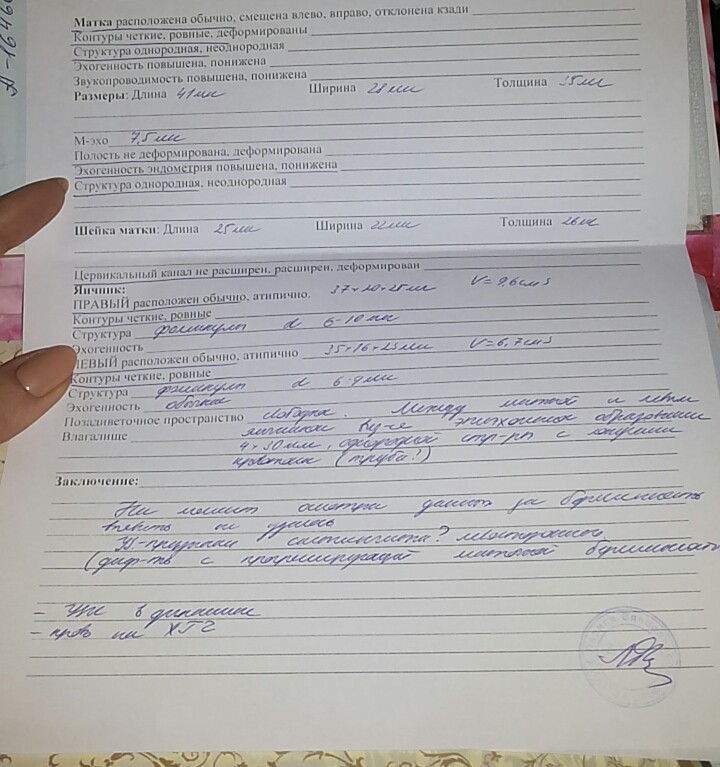 Матка расположена обычно, смещена влево, вправо, отклонена кзади
Контуры четкие, ровные, деформированы
Структура однородная, неоднородная
Эхогенность повышена, понижена
Звукопроводимость повышена, понижена
Размеры: Длина 41мм Ширина 28мм Толщина 35мм
М-эхо 7,5мм
Полость не деформирована, деформирована
Эхогенность эндометрия повышена, понижена
Структура однородная, неоднородная
Шейка матки: Длина 25мм Ширина 22мм Толщина 26мм
Цервикальный канал не расширен, расширен, деформирован
Яичник:
ПРАВЫЙ расположен обычно, атипично. V=9,6см3
Контуры четкие, ровные
Структура фолликулы d 6-10мм
Эхогенность
ЛЕВЫЙ расположен обычно, атипично 35×16×23мм V=6,7см3
Контуры четкие, ровные
Структура фолликулы d 6-9мм
Эхогенность обычная
Позадиветочное пространство свободно. Между маткой и левым
Влагалище яичником образование
однородной стр-ры с
(труба?)
Заключение:
На момент осмотра данных за беременность
не удалось
УЗ-признаки сальпингита?
(диф-ть с прогрессирующей маточной беременностью
- УЗИ в динамике
- кровь на ХГЧ